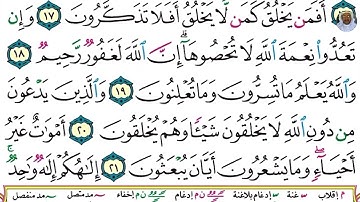 أَفَمَن يَخْلُقُ كَمَن لَّا يَخْلُقُ أَفَلَا تَذَكَّرُونَ ١٧ وَإِن
تَعُدُّوا۟ نِعْمَةَ ٱللَّهِ لَا تُحْصُوهَآ ۗ إِنَّ ٱللَّهَ لَغَفُورٌ رَّحِيمٌ ١٨
وَٱللَّهُ يَعْلَمُ مَا تُسِرُّونَ وَمَا تُعْلِنُونَ ١٩ وَٱلَّذِينَ يَدْعُونَ
مِن دُونِ ٱللَّهِ لَا يَخْلُقُونَ شَيْـًٔا وَهُمْ يُخْلَقُونَ ٢٠ أَمْوَٰتٌ غَيْرُ
أَحْيَآءٍ ۖ وَمَا يَشْعُرُونَ أَيَّانَ يُبْعَثُونَ ٢١ إِلَـٰهُكُمْ إِلَـٰهٌ وَٰحِدٌ ۚ
م إقلاب غنة إدغام بلاغنة ن م إدغام ن م إخفاء مد متصل مد منفصل